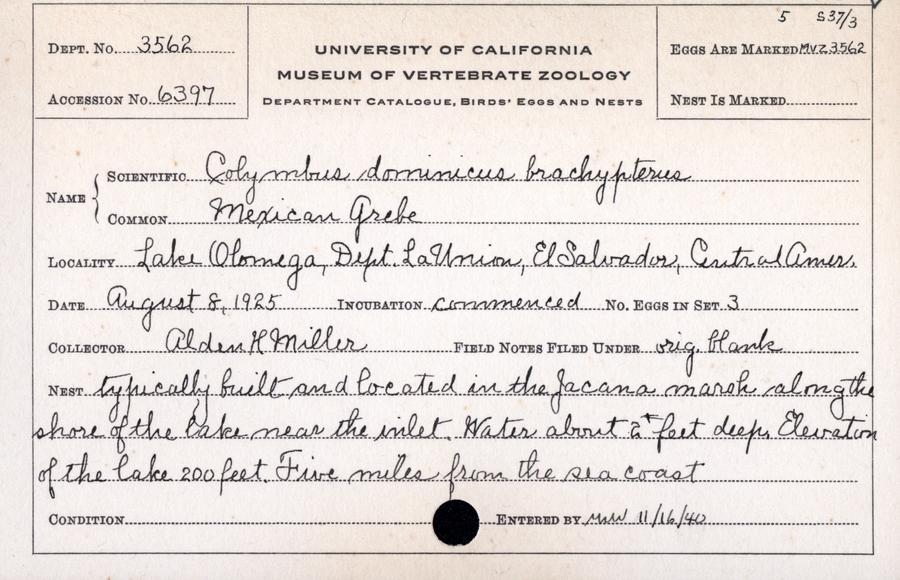 5 S37/3
DEPT. NO. 3562
UNIVERSITY OF CALIFORNIA
EGGS ARE MARKED MVZ 3562
MUSEUM OF VERTEBRATE ZOOLOGY
ACCESSION NO. 6397
DEPARTMENT CATALOGUE, BIRDS' EGGS AND NESTS
NEST IS MARKED
NAME
SCIENTIFIC Colymbus dominicus brachypterus
COMMON Mexican Grebe
LOCALITY Lake Olomega, Dept. La Union, El Salvador, Central Amer.
DATE August 8, 1925 INCUBATION commenced NO. EGGS IN SET 3
COLLECTOR Alden H Miller FIELD NOTES FILED UNDER orig. blank
NEST typically built and located in the Jacana marsh along the
shore of the lake near the inlet. Water about feet deep. Elevation
of the lake 200 feet. Five miles from the sea coast
CONDITION ENTERED BY 11/16/40